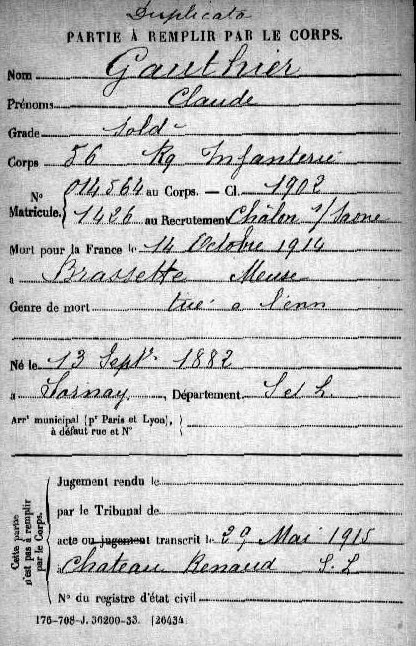 Duplicata
PARTIE À REMPLIR PAR LE CORPS.
Nom Gauthier
Prénoms Claude
Grade Sold
Corps 56 Rg Infanterie
N° Matricule. { 014564 au Corps. — Cl. 1902
1426 au Recrutement Châlon s/Saone
Mort pour la France le 14 Octobre 1914
à Brassette Meuse
Genre de mort tué a l'enn
Né le 13 Septe 1882
à Sornay, Département S et L.
Arrt municipal (pr Paris et Lyon), à défaut rue et N° }
Cette partie n'est pas à remplir par le Corps.
Jugement rendu le
par le Tribunal de
acte ou jugement transcrit le 29 Mai 1915
à Chateau Renaud S. L
N° du registre d'état civil
176-708-J. 36200-33. [26434.